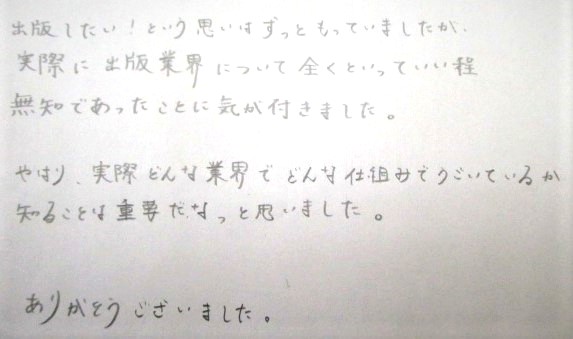 出版したい!という思いはずっともっていましたが、
実際に出版業界について全くといっていい程
無知であったことに気が付きました。
やはり、実際どんな業界でどんな仕組みでうごいているか
知ることは重要だなっと思いました。
ありがとうございました。